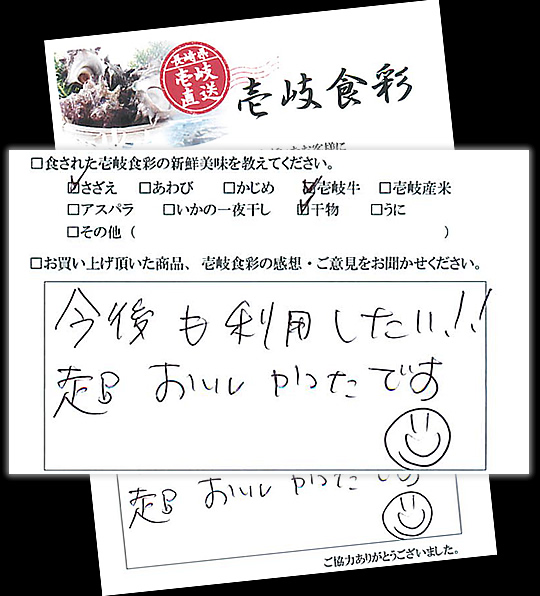 長崎県
壱岐
直送
壱岐食彩
□食された壱岐食彩の新鮮美味を教えてください。
☑さざえ □あわび □かじめ ☑壱岐牛 □壱岐産米
□アスパラ □いかの一夜干し ☑干物 □うに
□その他（ ）
□お買い上げ頂いた商品、壱岐食彩の感想・ご意見をお聞かせください。
今後も利用したい!!
超おいしかったです
超おいしかったです
ご協力ありがとうございました。